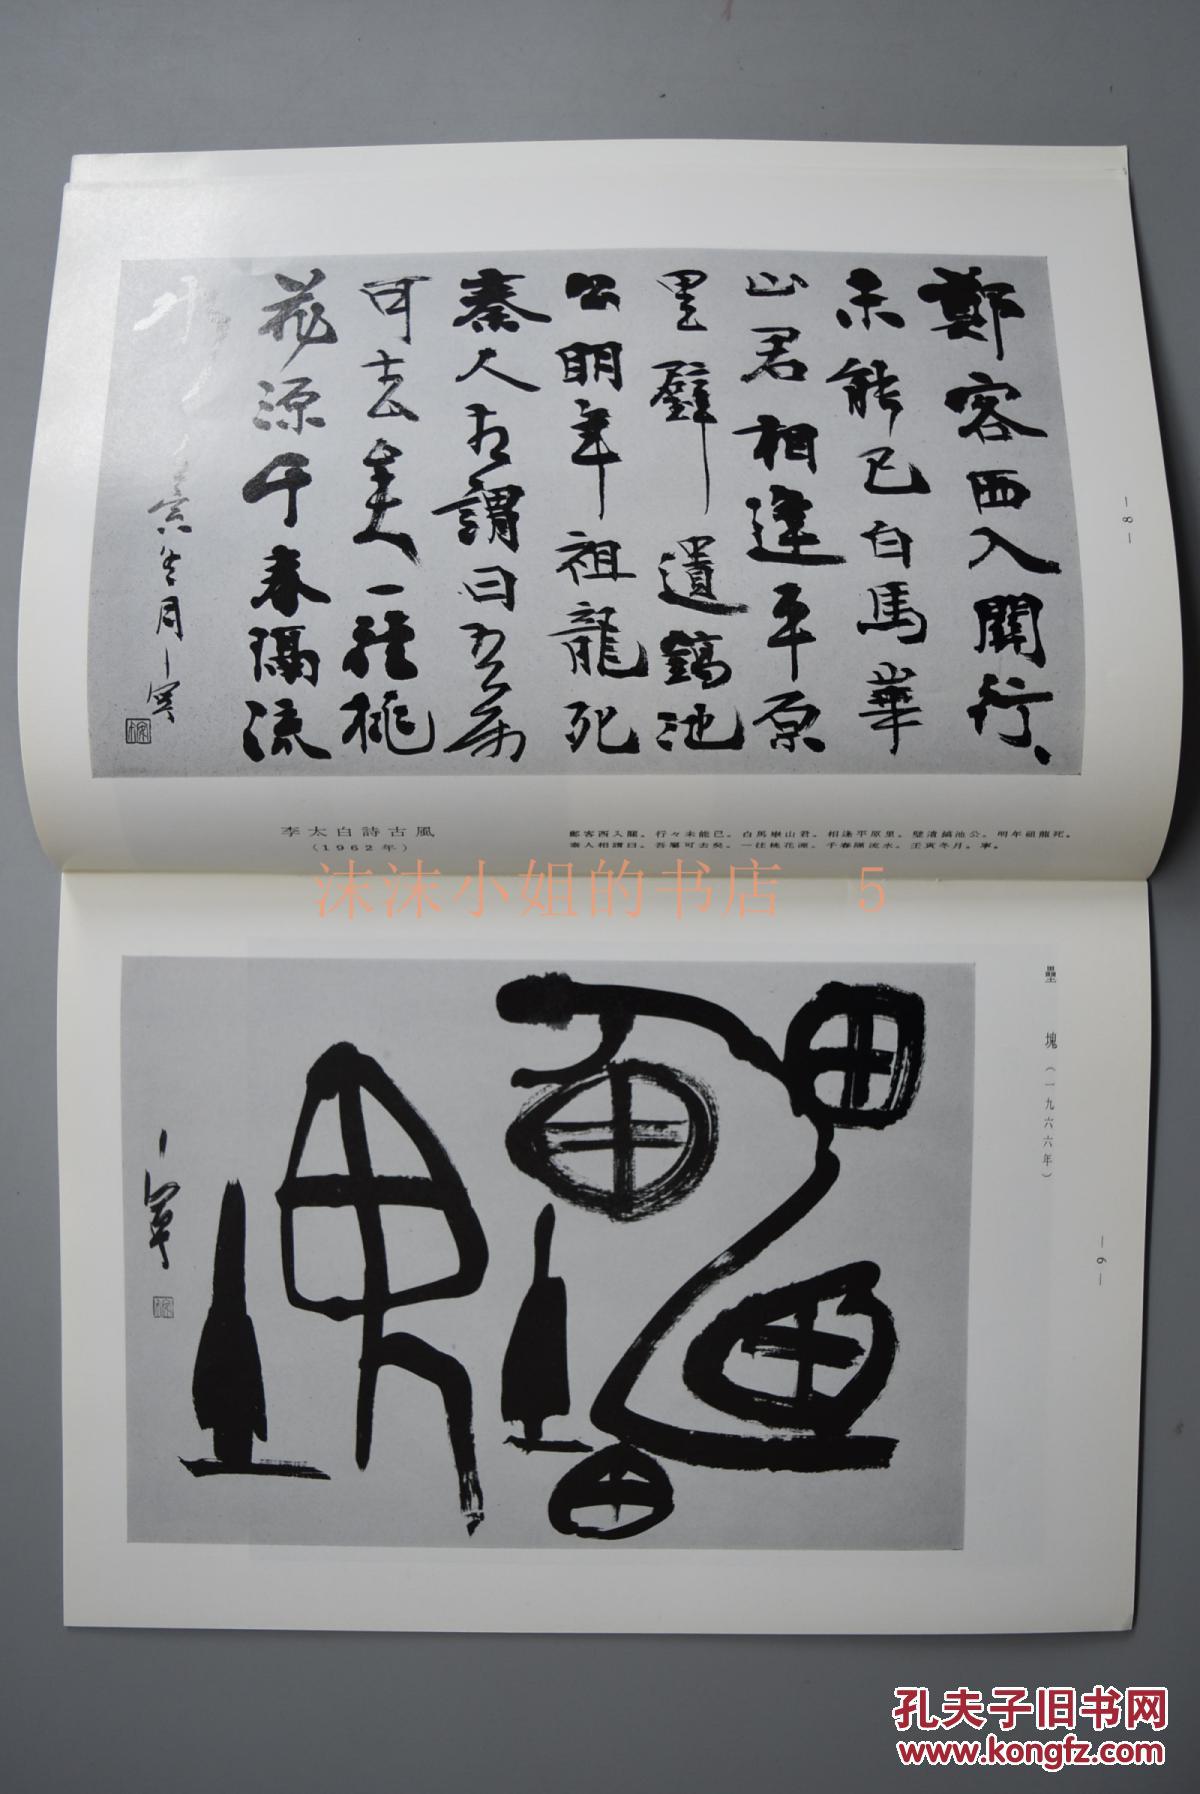 鄭客西入關行、
未能已白馬華
山君相逢平原
里璧遺鎬池
公明年祖龍死
秦人相謂曰吾屬
可去矣一往桃
花源千春隔流
水
— 8 —
李太白詩古風
(1962年)
鄭客西入關。行々未能已。白馬華山君。相逢平原里。璧遺鎬池公。明年祖龍死。
秦人相謂曰。吾屬可去矣。一往桃花源。千春隔流水。壬寅冬月。寧。
沫沫小姐的书店 5
壘塊(一九六六年)
— 9 —
孔夫子旧书网
www.kongfz.com